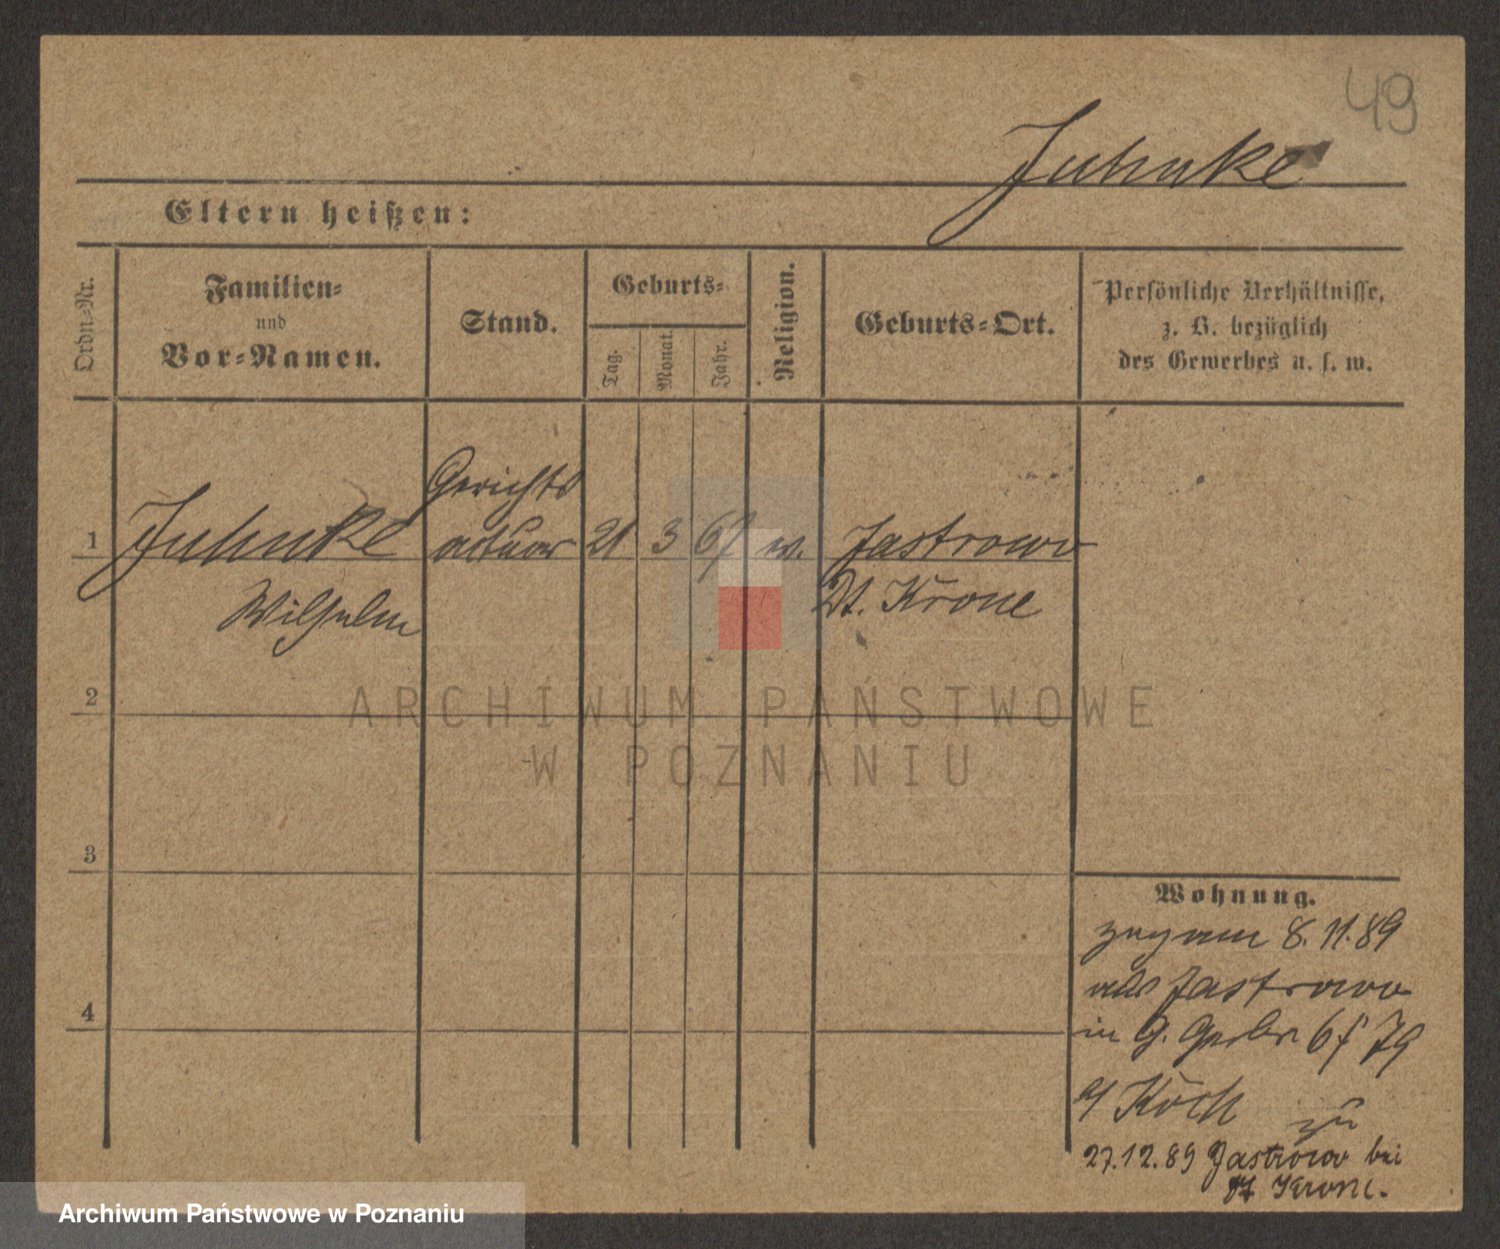 49
Juhnke
Eltern heißen:
Ordn.-Nr.
Familien-
und
Vor-Namen.
Stand.
Geburts-
Tag.
Monat.
Jahr.
Religion.
Geburts-Ort.
Persönliche Verhältnisse,
z. B. bezüglich
des Gewerbes u. s. w.
Gerichts
1 Juhnke actuar 21 3 67 ev. Jastrow
Wilhelm Dt. Krone
2
ARCHIWUM PAŃSTWOWE
W POZNANIU
3
Wohnung.
zug am 8.11.89
aus Jastrow
4
in G. Gerbr 6 f 79
Koch
zu
27.12.89 Jastrow bei
Dt Krone.
Archiwum Państwowe w Poznaniu